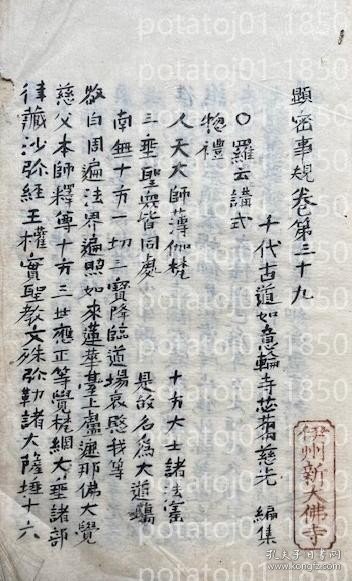 顕密事規卷第三十九
千代古道如意輪寺苾蒭慈光 編集
〇羅云講式
惣禮
人天大師薄伽梵 十方大士諸法宝
三乗聖衆皆同處 是故名為大道場
南無十方一切三寶降臨道場哀愍我等
敬白周遍法界遍照如来蓮華臺上盧遮那佛大覺
慈父本師釋尊十方三世應正等覺梵網大乗諸部
律藏沙弥經王權實聖教文殊弥勒諸大薩埵十六
伊州新大佛寺
孔子旧书网